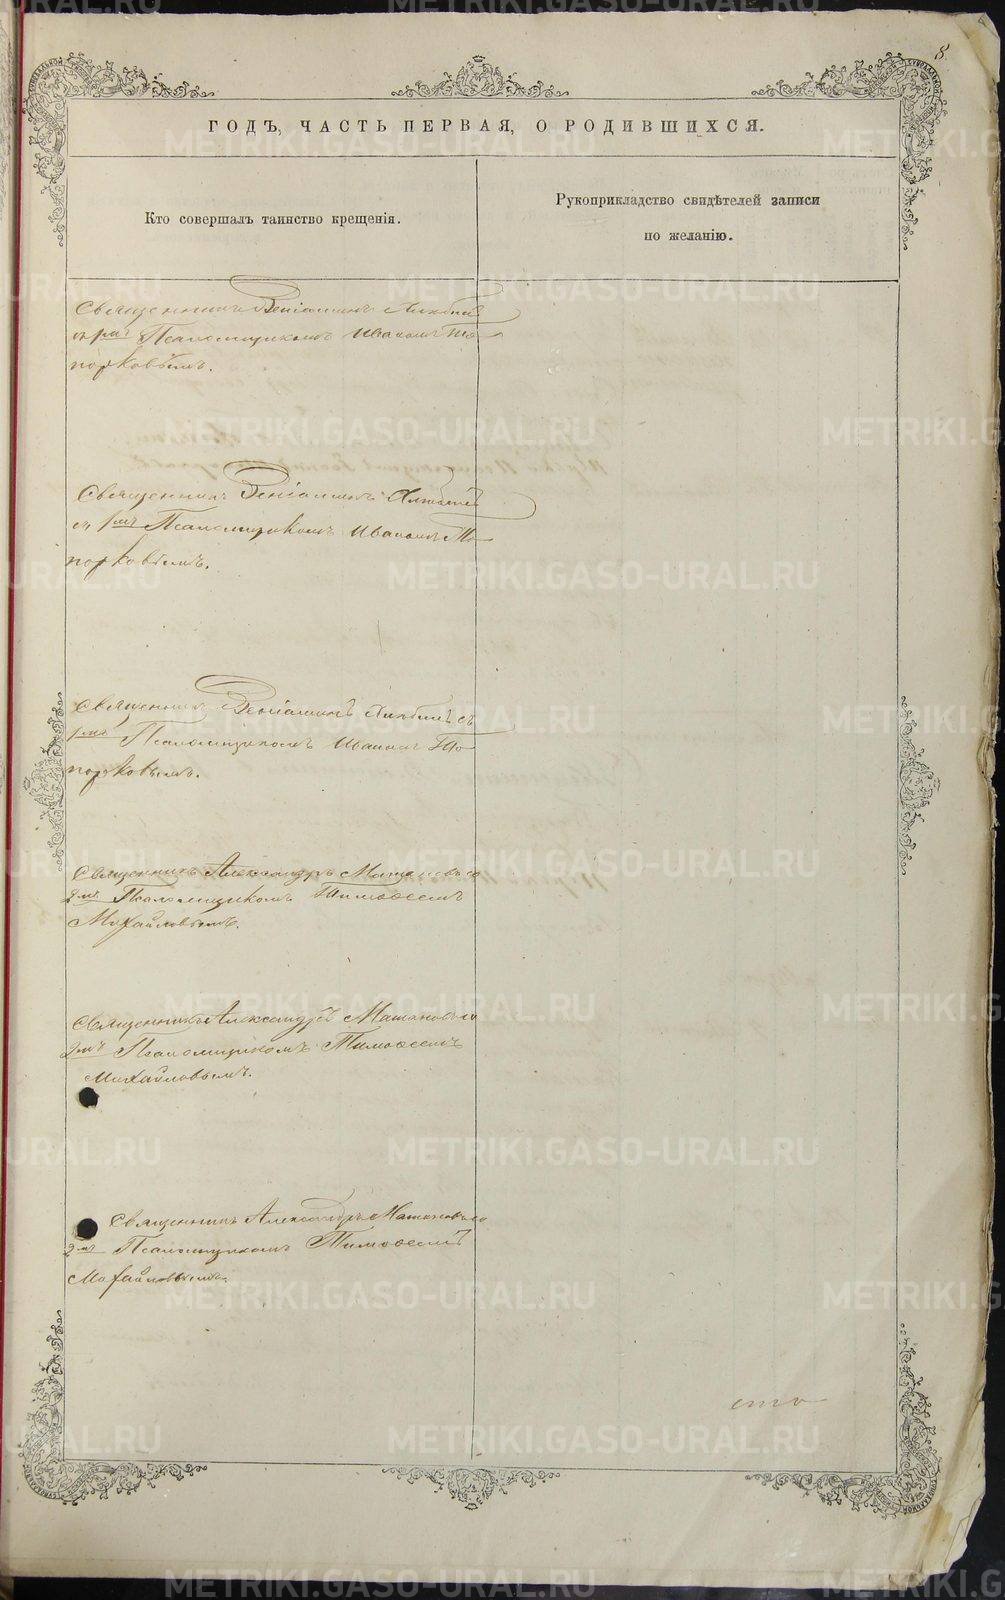 8.
ГОДЪ, ЧАСТЬ ПЕРВАЯ, О РОДИВШИХСЯ.
Кто совершалъ таинство крещенія.
Рукоприкладство свидѣтелей записи
по желанію.
Священникъ Веніаминъ
съ 1мъ Псаломщикомъ Иваномъ То-
порковымъ.
Священникъ Веніаминъ
съ 1мъ Псаломщикомъ Иваномъ То-
порковымъ.
Священникъ Веніаминъ съ
1мъ Псаломщикомъ Иваномъ То-
порковымъ.
Священникъ Александръ съ
2мъ Псаломщикомъ Тимофеемъ
Михайловымъ.
Священникъ Александръ съ
2мъ Псаломщикомъ Тимофеемъ
Михайловымъ.
Священникъ Александръ съ
2мъ Псаломщикомъ Тимофеемъ
Михайловымъ.
METRIKI.GASO-URAL.RU